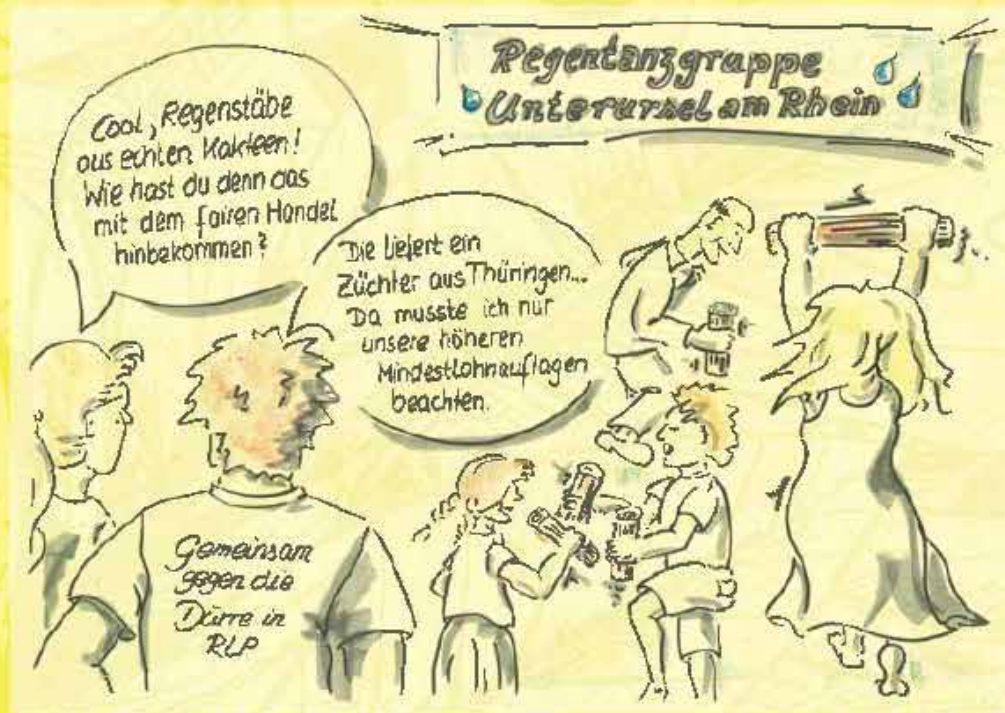 Regentanzgruppe
Unterursel am Rhein
Cool, Regenstäbe
aus echten Kakteen!
Wie hast du denn das
mit dem fairen Handel
hinbekommen?
Die liefert ein
Züchter aus Thüringen...
Da musste ich nur
unsere höheren
Mindestlohnauflagen
beachten.
Gemeinsam
gegen die
Dürre in
RLP